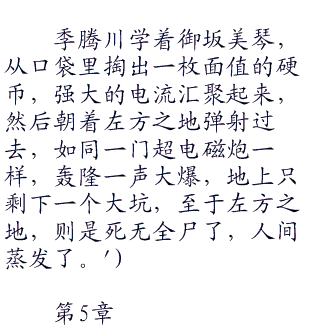 季腾川学着御坂美琴，
从口袋里掏出一枚面值的硬
币，强大的电流汇聚起来，
然后朝着左方之地弹射过
去，如同一门超电磁炮一
样，轰隆一声大爆，地上只
剩下一个大坑，至于左方之
地，则是死无全尸了，人间
蒸发了。')
第5章